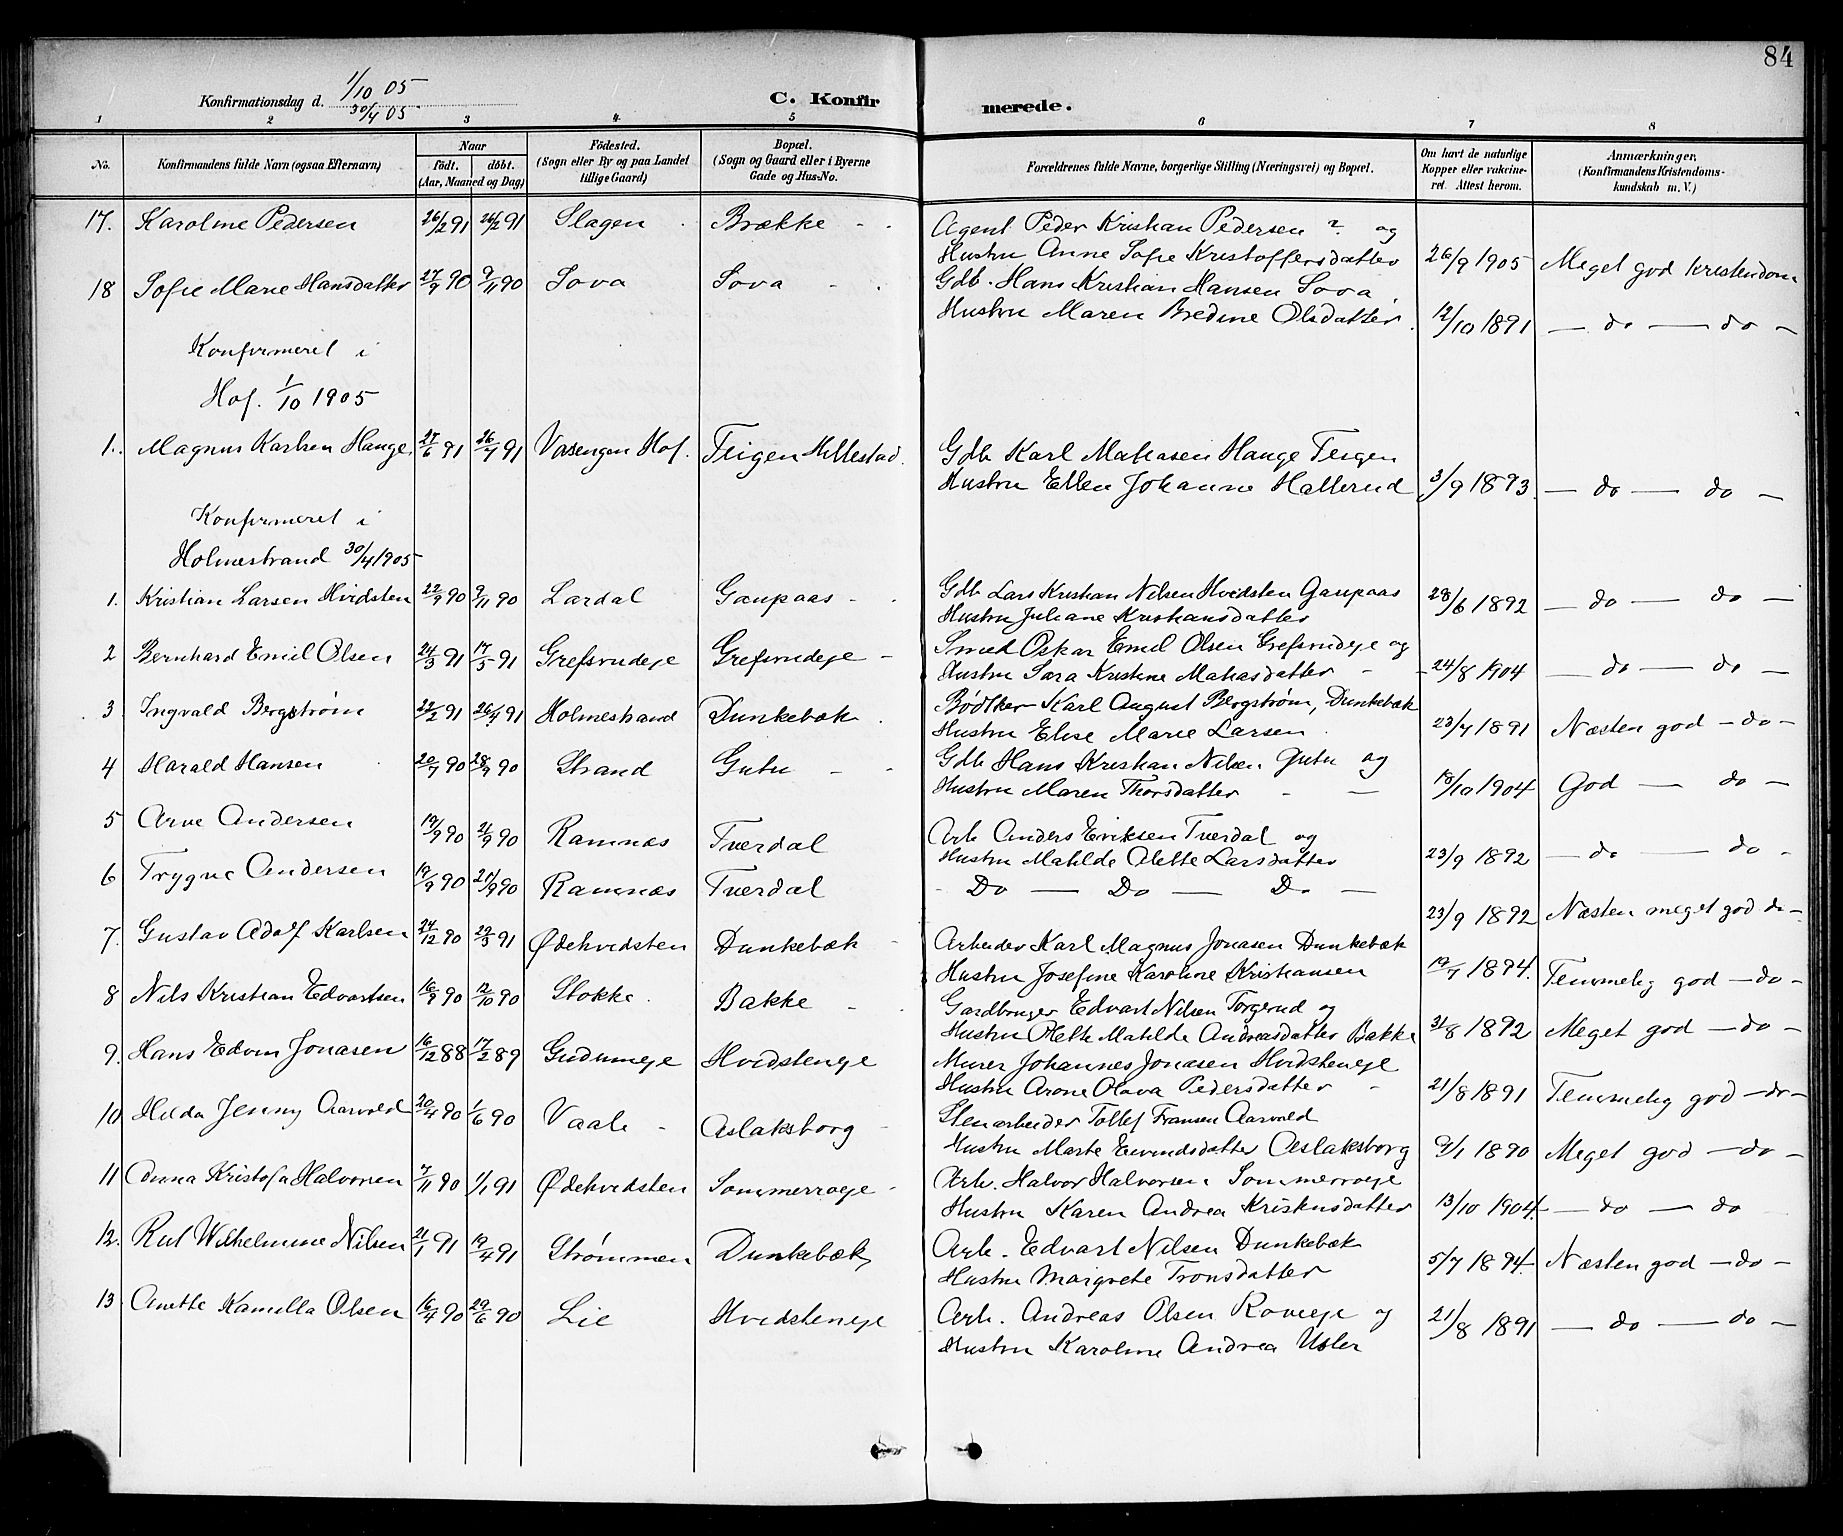 84
Konfirmationsdag d. 1/10 05
30/4 05
C. Konfirmerede.
1 2 3 4 5 6 7 8
No. Konfirmandens fulde Navn (ogsaa Efternavn) Naar født. døbt. (Aar, Maaned og Dag) Födested. (Sogn eller By og paa Landet tillige Gaard) Bopæl. (Sogn og Gaard eller i Byerne Gade og Hus-No.) Forældrenes fulde Navne, borgerlige Stilling (Næringsvei) og Bopæl. Om havt de naturlige Kopper eller vakcineret. Attest herom. Anmærkninger. (Konfirmandens Kristendomskundskab m. V.)
17. Karoline Pedersen 26/2 91 26/2 91 Slagen Brække Agent Peder Kristian Pedersen ? og
Hustru Anne Sofie Kristoffersdatter 26/9 1905 Meget god kristendom
18 Sofie Marie Hansdatter 27/9 90 9/11 90 Sova Sova Gdb. Hans Kristian Hansen Sova
Hustru Maren Bredine Olsdatter 12/10 1891 — do — do —
Konfirmeret i
Hof. 1/10 1905
1. Magnus Karlsen Hauge 27/6 91 26/7 91 Vasengen Hof. Teigen Hillestad. Gdb Karl Matiasen Hauge Teigen
Hustru Ellen Johanne Hallerud 3/9 1893 — do — do —
Konfirmeret i
Holmestrand 30/4 1905
1. Kristian Larsen Hvidsten 22/9 90 9/11 90 Lardal Gaupaas Gdb Lars Kristian Nilsen Hvidsten Gaupaas
Hustru Juliane Kristiansdatter 28/6 1892 — do — do —
2 Bernhard Emil Olsen 24/3 91 17/5 91 Grefsrudeje Grefsrudeje Smed Oskar Emil Olsen Grefsrudeje og
Hustru Sara Kristine Matiasdatter 24/8 1904 — do — do —
3 Ingvald Bergstrøm 22/2 91 26/4 91 Holmestrand Dunkebæk Bødtker Karl August Bergstrøm, Dunkebæk
Hustru Elise Marie Larsen 23/7 1891 Næsten god — do —
4 Harald Hansen 20/7 90 28/9 90 Strand Gutu Gdb Hans Kristian Nilsen Gutu og
Hustru Maren Thorsdatter 18/10 1904 God — do —
5 Arve Andersen 19/9 90 21/9 90 Ramnæs Tverdal Arb Anders Eriksen Tverdal og
Hustru Matilde Alette Larsdatter 23/9 1892 — do — do —
6 Trygve Andersen 19/9 90 21/9 90 Ramnæs Tverdal Do — Do — Do — 23/9 1892 Næsten meget god do —
7. Gustav Adolf Karlsen 24/12 90 29/3 91 Ødehvidsten Dunkebæk Arbeider Karl Magnus Jonasen Dunkebæk
Hustru Josefine Karoline Kristiansen 19/7 1894. Temmelig god — do —
8 Nils Kristian Edvartsen 16/9 90 12/10 90 Stokke Bakke Gardbruger Edvart Nilsen Torgerud og
Hustru Alette Matilde Andreasdatter Bakke 31/8 1892 Meget god — do —
9. Hans Edvin Jonasen 16/12 88 17/2 89 Gudumeje Hvidsteneje Murer Johannes Jonasen Hvidsteneje
Hustru Arone Olava Pedersdatter 21/8 1891 Temmelig god — do —
10 Hilda Jenny Aarvold 20/4 90 1/6 90 Vaale Aslaksborg Stenarbeider Tollef Fransen Aarvold
Hustru Marte Eevindsdatter Aslaksborg 9/1 1890 Meget god — do —
11 Anna Kristofa Halvorsen 7/11 90 1/1 91 Ødehvidsten Sommerroeje Arb. Halvor Halvorsen Sommerroeje
Hustru Karen Andrea Kristensdatter 13/10 1904. — do — do
12. Rut Wilhelmine Nilsen 21/1 91 19/4 91 Strømmen Dunkebæk Arb. Edvart Nilsen Dunkebæk
Hustru Maigrete Tronsdatter 5/7 1894. Næsten god — do —
13 Anette Kamilla Olsen 16/4 90 29/6 90 Lie Hvidsteneje Arb. Andreas Olsen Roveeje og
Hustru Karoline Andrea Usler 21/8 1891 — do — do —